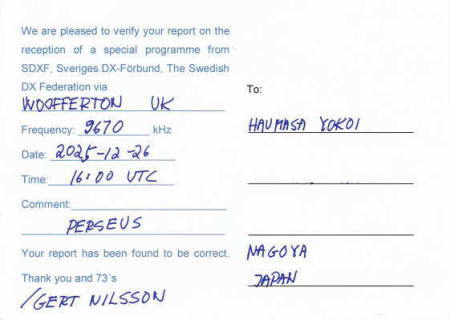 We are pleased to verify your report on the
reception of a special programme from
SDXF, Sveriges DX-Förbund, The Swedish
DX Federation via
WOOFFERTON UK
Frequency: 9670 kHz
Date: 2025-12-26
Time: 16:00 UTC
Comment:
PERSEUS
Your report has been found to be correct.
Thank you and 73`s
/GERT NILSSON
To:
HAUMASA YOKOI
NAGOYA
JAPAN